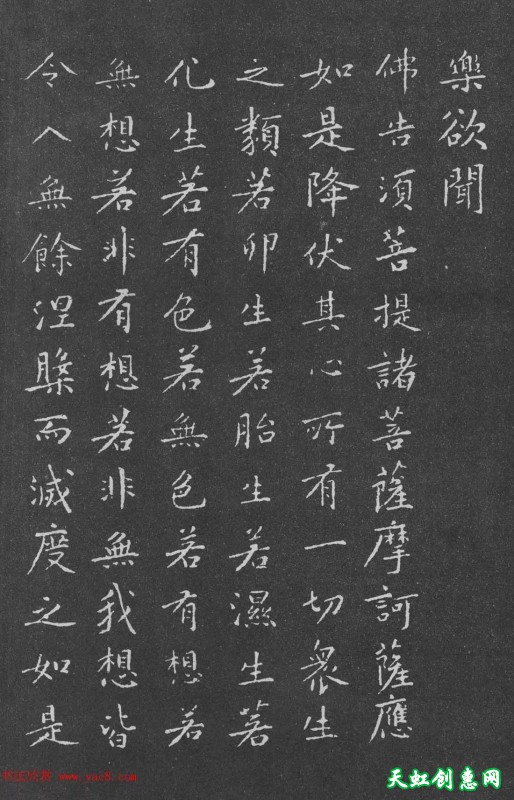 樂欲聞
佛告須菩提諸菩薩摩訶薩應
如是降伏其心所有一切衆生
之類若卵生若胎生若濕生若
化生若有色若無色若有想若
無想若非有想若非無我想皆
令入無餘涅槃而滅度之如是
书法欣赏 www.yac8.com
天虹创惠网